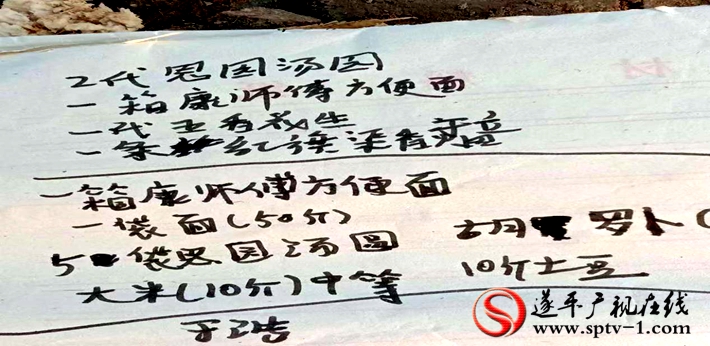 2代思图汤圆
一箱康师傅方便面
一代
一条 红
一箱康师傅方便面
一袋面(50斤)
5 袋思因汤圆
胡 罗卜(
大米(10斤)中等
10斤土豆
于浩
遂平广视在线
www.sptv-1.com